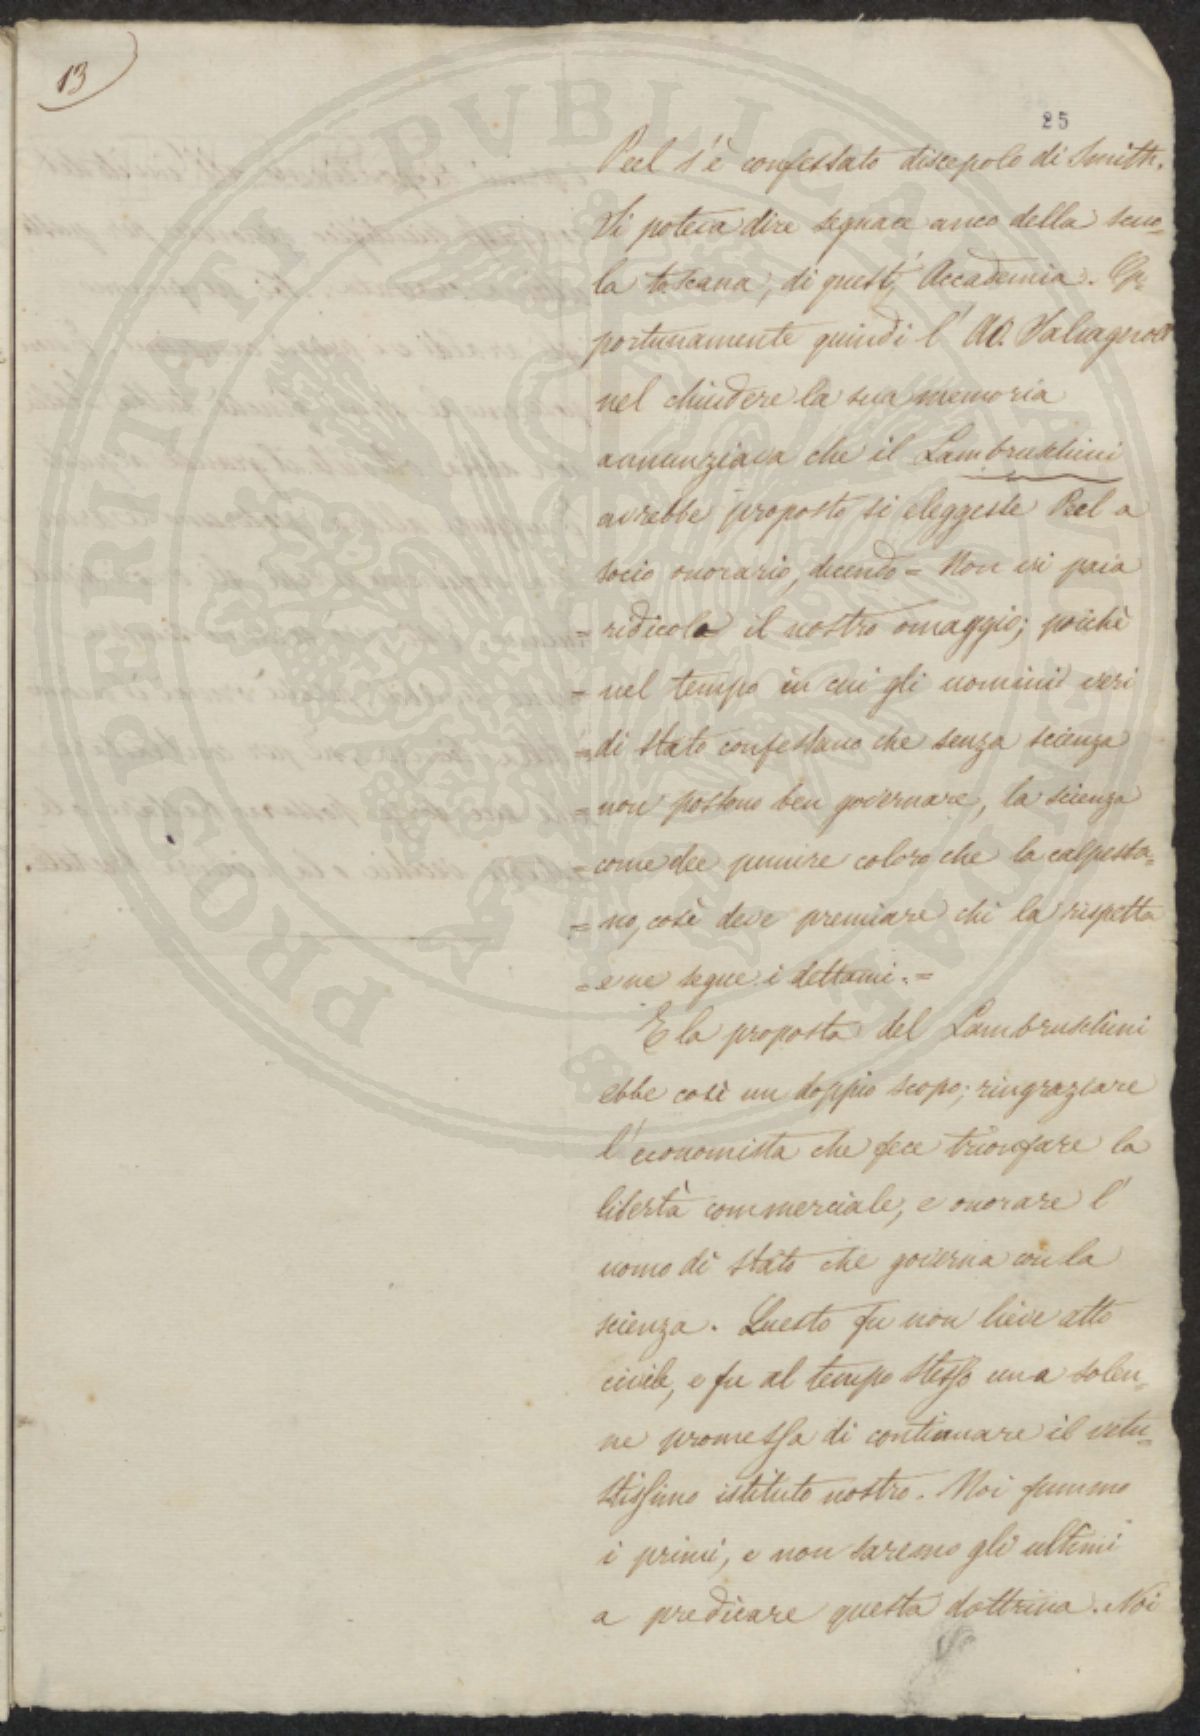 13
25
Peel s'è confessato discepolo di Smith.
Si poteva dire seguace anco della scuo=
la toscana, di quest' Accademia. Op=
portunamente quindi l' Av. Salvagnoli
nel chiudere la sua memoria
annunziava che il Lambruschini
avrebbe proposto si eleggesse Peel a
socio onorario, dicendo = Non vi paia
= ridicolo il nostro omaggio; poichè
= nel tempo in cui gli uomini veri
= di stato confessano che senza scienza
= non possono ben governare, la scienza
= come dee punire coloro che la calpesta=
= no, così deve premiare chi la rispetta
= e ne segue i dettami. =
E la proposta del Lambruschini
ebbe così un doppio scopo; ringraziare
l'economista che fece trionfare la
libertà commerciale, e onorare l'
uomo di stato che governa con la
scienza. Questo fu non lieve atto
civile, e fu al tempo stesso una solen=
ne promessa di continuare il vetu=
stissimo istituto nostro. Noi fummo
i primi, e non saremo gli ultimi
a predicare questa dottrina. Noi
PROSPERITATI PUBLICAE AUGENDAE